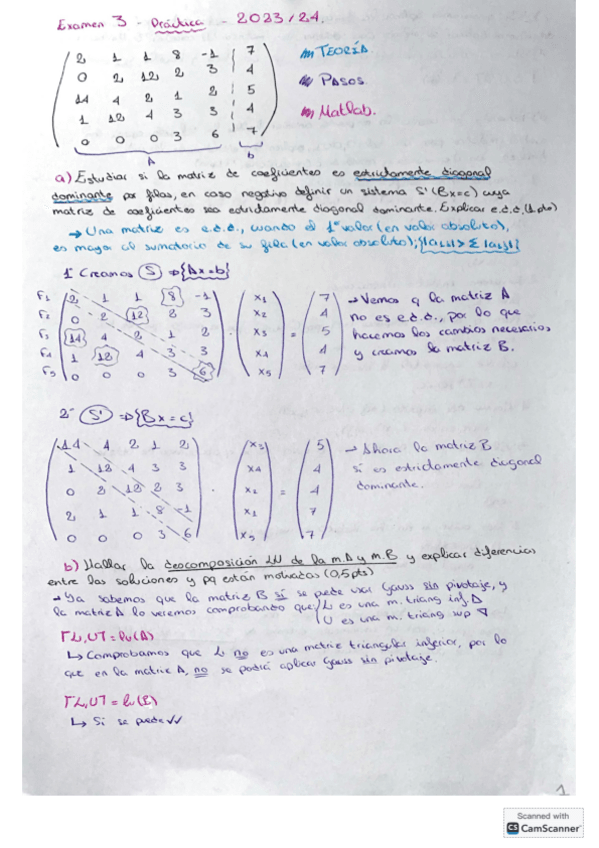 Examen 3 - Práctica - 2023/24
2 1 1 8 -1 | 7
0 2 12 2 3 | 4
14 4 2 1 2 | 5
1 12 4 3 3 | 4
0 0 0 3 6 | 7
A b
TEORÍA.
PASOS.
Matlab.
a) Estudiar si la matriz de coeficientes es estrictamente diagonal
dominante por filas, en caso negativo definir un sistema S' (Bx=c) cuya
matriz de coeficientes sea estrictamente diagonal dominante. Explicar e.d.d.
→ Una matriz es e.d.d., cuando el 1º valor (en valor absoluto),
es mayor al sumatorio de su fila (en valor absoluto);
1º Creamos S ⇒ {Ax=b}
F1 2 1 1 8 -1 x1 7
F2 0 2 12 2 3 x2 4
F3 14 4 2 1 2 · x3 = 5
F4 1 12 4 3 3 x4 4
F5 0 0 0 3 6 x5 7
→ Vemos q la matriz A
no es e.d.d., por lo que
hacemos los cambios necesarios
y creamos la matriz B.
2º S' ⇒ {Bx=c}
14 4 2 1 2 x3 5
1 12 4 3 3 x4 4
0 2 12 2 3 · x2 = 4
2 1 1 8 -1 x1 7
0 0 0 3 6 x5 7
→ Ahora la matriz B
sí es estrictamente diagonal
dominante.
b) Hallar la descomposición LU de la m.A y m.B y explicar diferencias
entre las soluciones y pq están motivadas (0,5pts)
→ Ya sabemos que la matriz B sí se puede usar Gauss sin pivotaje, y
la matriz A lo veremos comprobando que { L es una m. triang inf.
U es una m. triang sup
[L,U] = lu(A)
↳ Comprobamos que L no es una matriz triangular inferior, por lo
que en la matriz A, no se podrá aplicar Gauss sin pivotaje.
[L,U] = lu(B)
↳ Si se puede ✓✓
1
Scanned with
CS CamScanner